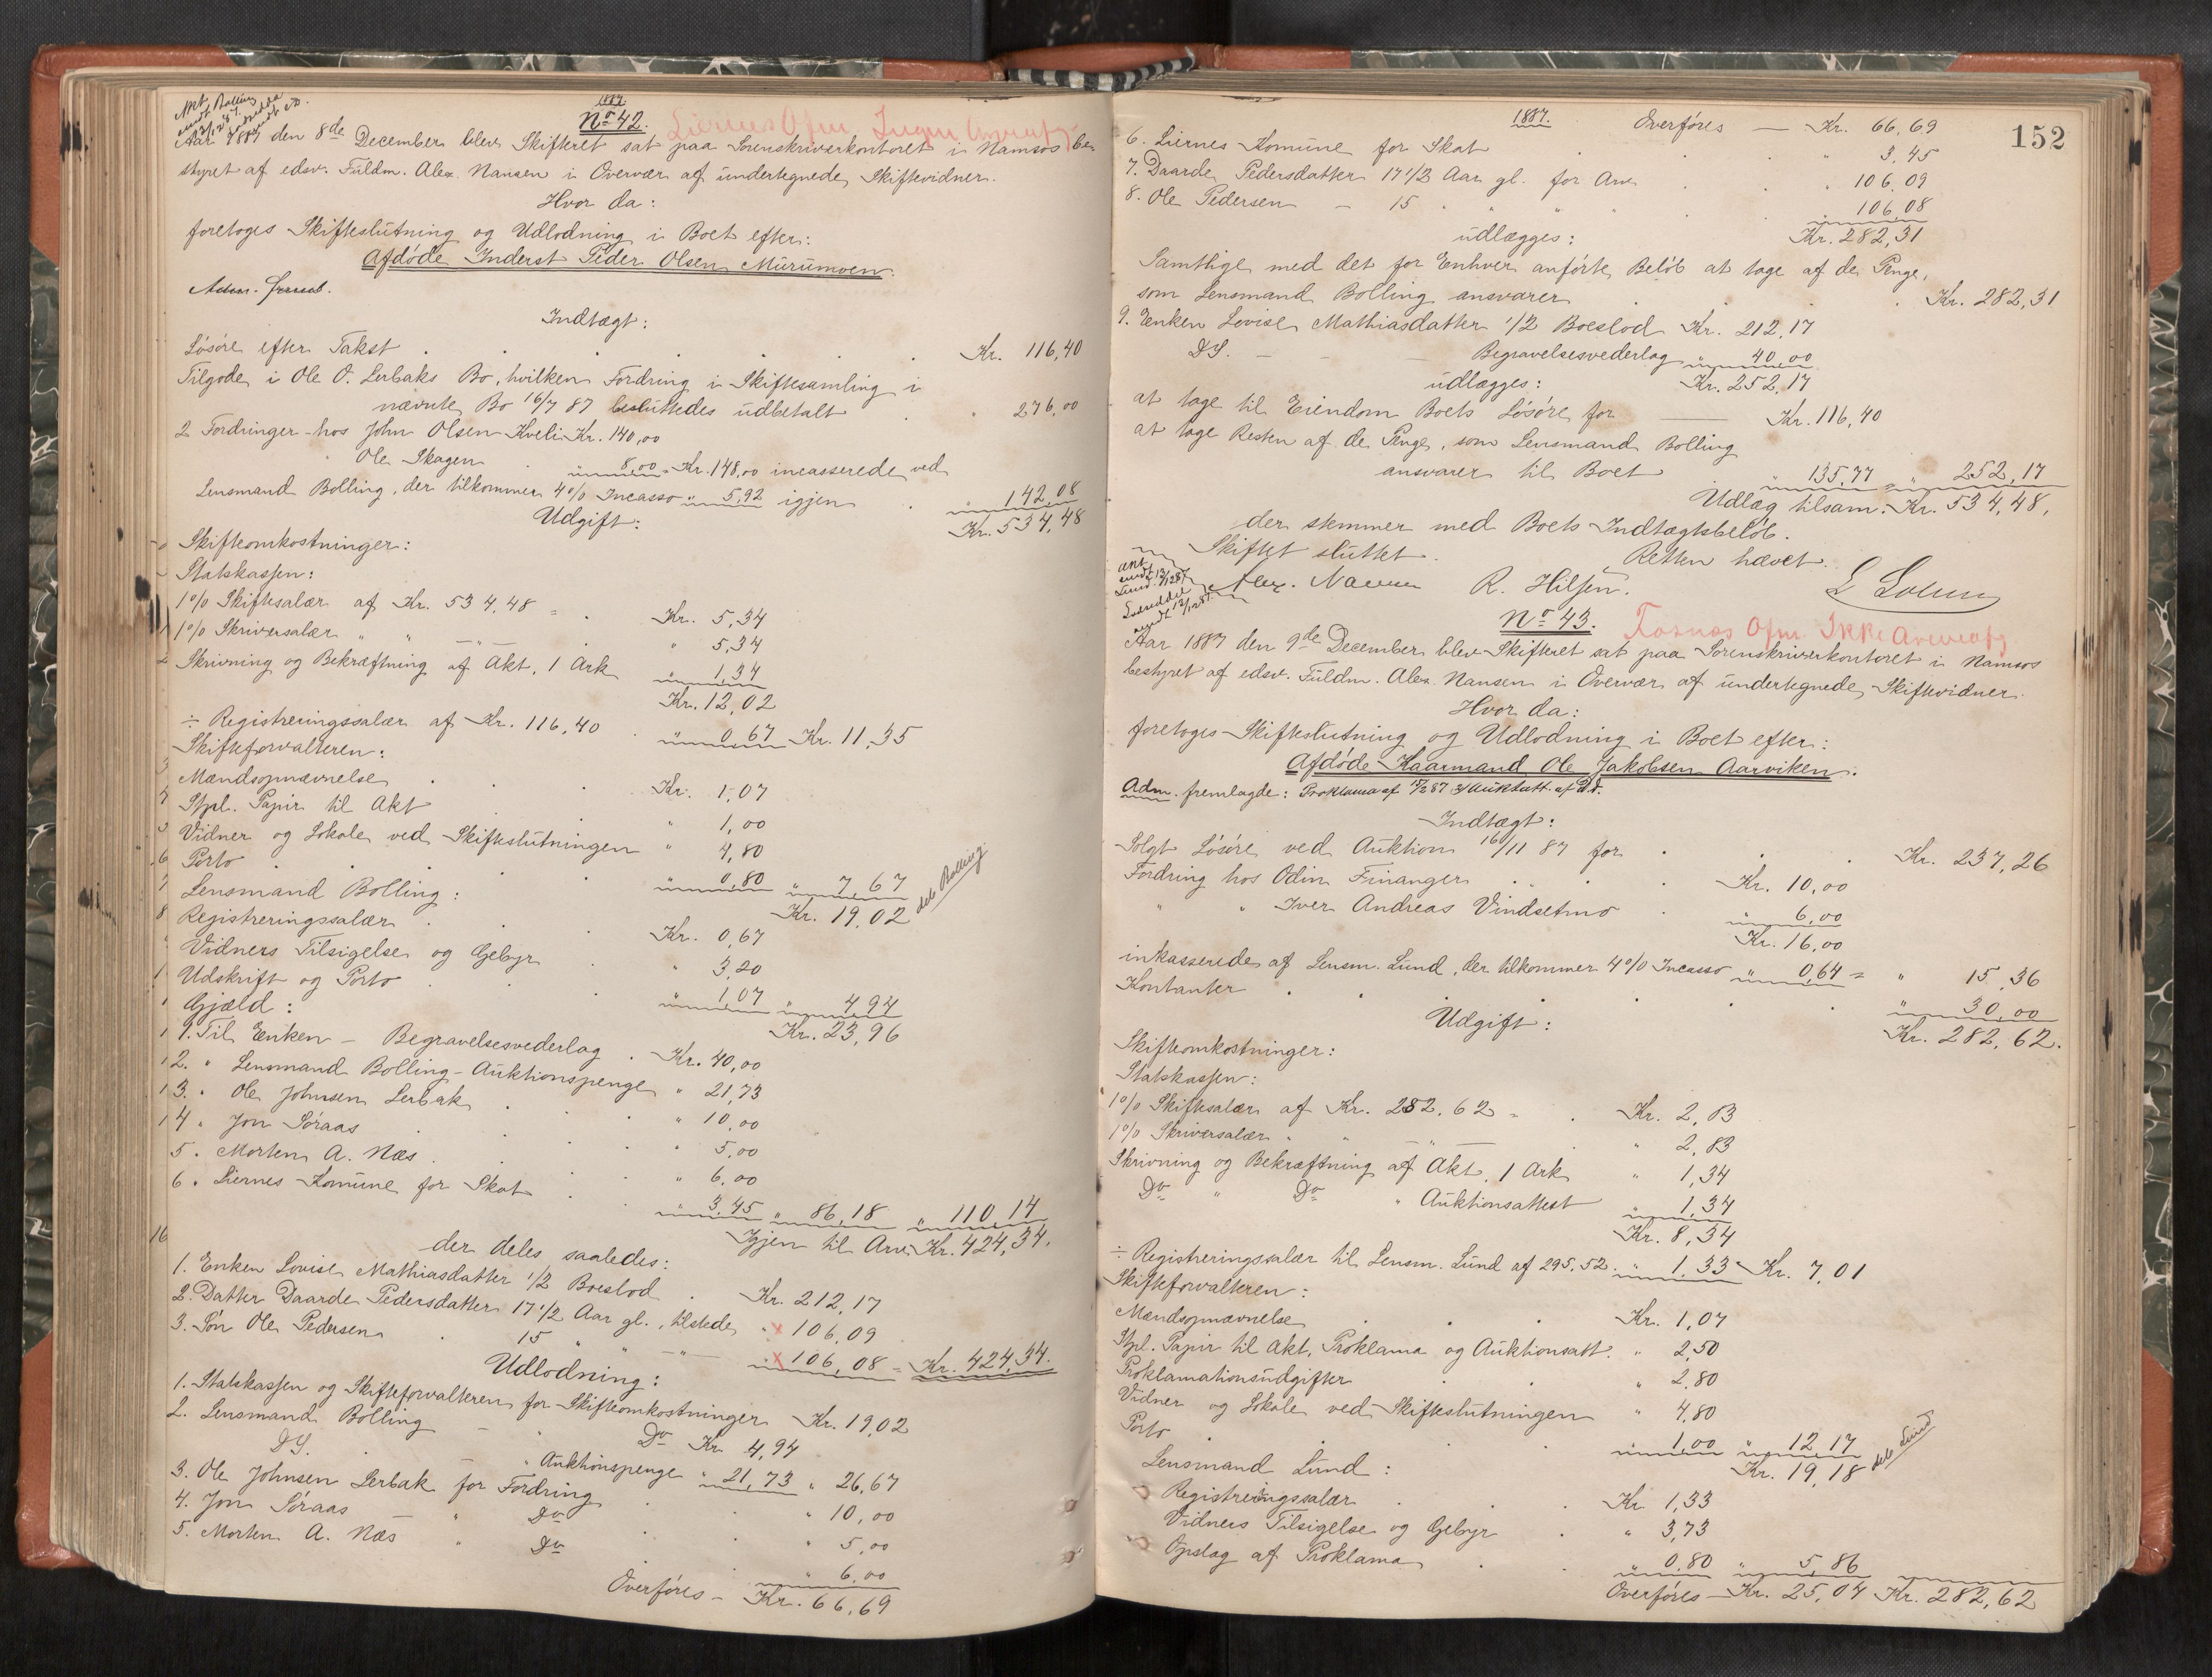 1887.
No 42.
Liernes Ofm.
Aar 1887 den 8de December blev Skifteret sat paa Sorenskriverkontoret i Namsos be-
styret af edsv. Fuldm. Alex. Nansen i Overvær af undertegnede Skiftevidner.
Hvor da:
foretoges Skifteslutning og Udlodning i Boet efter:
Afdøde Inderst Peder Olsen Murumoen.
Indtægt:
Løsøre efter Takst . . . . . Kr. 116,40
Tilgode i Ole O. Lerbaks Bo, hvilken Fordring i Skiftesamling i
nævnte Bo 16/7 87 besluttedes udbetalt . " 276,00
2 Fordringer hos John Olsen Kveli Kr. 140,00
" Ole Skagen " 8,00 = Kr. 148,00 incasserede ved
Lensmand Bolling, der tilkommer 4 % Incasso " 5,92 igjen . " 142,08
Kr. 534,48
Udgift:
Skifteomkostninger:
Statskassen:
1 % Skiftesalær af Kr. 534,48 = . Kr. 5,34
1 % Skriversalær " " —"— " 5,34
Skrivning og Bekræftning af Akt, 1 Ark " 1,34
Kr. 12,02
÷ Registreringssalær af Kr. 116,40 . " 0,67 Kr. 11,35
Skifteforvalteren:
Mændsopnævnelse . . Kr. 1,07
Stpl. Papir til Akt . . " 1,00
Vidner og Lokale ved Skifteslutningen " 4,80
Porto . . . " 0,80 " 7,67
Kr. 19,02
Lensmand Bolling:
Registreringssalær . . Kr. 0,67
Vidners Tilsigelse og Gebyr . " 3,20
Udskrift og Porto . . " 1,07 " 4,94
Kr. 23,96
Gjæld:
1. Til Enken – Begravelsesvederlag . Kr. 40,00
2. " Lensmand Bolling – Auktionspenge " 21,73
3. " Ole Johnsen Lerbak . " 10,00
4. " Jon Søraas . . " 5,00
5. " Morten A. Næs . . " 6,00
6. " Liernes Komune for Skat . " 3,45 " 86,18 " 110,14
Igjen til Arv Kr. 424,34.
der deles saaledes:
1. Enken Lovise Mathiasdatter 1/2 Boeslod . Kr. 212,17
2. Datter Daarde Pedersdatter 17 1/2 Aar gl., tilstede " 106,09
3. Søn Ole Pedersen . 15 " " —"— " 106,08 = Kr. 424,34.
Udlodning:
1. Statskassen og Skifteforvalteren for Skifteomkostninger Kr. 19,02
2. Lensmand Bolling – Do Kr. 4,94
DS. – " Auktionspenge " 21,73 " 26,67
3. Ole Johnsen Lerbak for Fordring . " 10,00
4. Jon Søraas " Do . " 5,00
5. Morten A. Næs " Do . " 6,00
Overføres – Kr. 66,69
152
1887.
Overføres — Kr. 66,69
6. Liernes Komune for Skat . . " 3,45
7. Daarde Pedersdatter 17 1/2 Aar gl. for Arv . " 106,09
8. Ole Pedersen – 15 " " " " 106,08
udlægges: Kr. 282,31
Samtlige med det for Enhver anførte Beløb at tage af de Penge,
som Lensmand Bolling ansvarer . . . Kr. 282,31
9. Enken Lovise Mathiasdatter 1/2 Boeslod Kr. 212,17
DS. — — Begravelsesvederlag " 40,00
udlægges: Kr. 252,17
at tage til Eiendom Boets Løsøre for — Kr. 116,40
at tage Resten af de Penge, som Lensmand Bolling
ansvarer til Boet " 135,77 = " 252,17
Udlæg tilsam. Kr. 534,48,
der stemmer med Boets Indtægtsbeløb.
Skiftet sluttet. Retten hævet.
Alex. Nansen R. Hilsen.
No 43.
Fosnes Ofm. Ikke
Aar 1887 den 9de December blev Skifteret sat paa Sorenskriverkontoret i Namsos
bestyret af edsv. Fuldm. Alex. Nansen i Overvær af undertegnede Skiftevidner.
Hvor da:
foretoges Skifteslutning og Udlodning i Boet efter:
Afdøde Kaarmand Ole Jakobsen Aarviken.
Adm. fremlagde: Proklama af
Indtægt:
Solgt Løsøre ved Auktion 16/11 87 for . . . Kr. 237,26
Fordring hos Odin Finanger . . . Kr. 10,00
" " Iver Andreas Vindsetmo . " 6,00
Kr. 16,00
inkasserede af Lensm. Lund, der tilkommer 4 % Incasso " 0,64 = " 15,36
Kontanter . . . . . " 30,00
Kr. 282,62.
Udgift:
Skifteomkostninger:
Statskassen:
1 % Skiftesalær af Kr. 282,62 = . Kr. 2,83
1 % Skriversalær " " —"— " 2,83
Skrivning og Bekræftning af Akt, 1 Ark " 1,34
Do " Do " Auktionsattest " 1,34
Kr. 8,34
÷ Registreringssalær til Lensm. Lund af 295,52. " 1,33 Kr. 7,01
Skifteforvalteren:
Mændsopnævnelse . . . Kr. 1,07
Stpl. Papir til Akt, Proklama og Auktionsatt. " 2,50
Proklamationsudgifter . . " 2,80
Vidner og Lokale ved Skifteslutningen " 4,80
Porto . . . " 1,00 " 12,17
Kr. 19,18
Lensmand Lund:
Registreringssalær . . Kr. 1,33
Vidners Tilsigelse og Gebyr . " 3,73
Opslag af Proklama . . " 0,80 " 5,86
Overføres – Kr. 25,04 Kr. 282,62